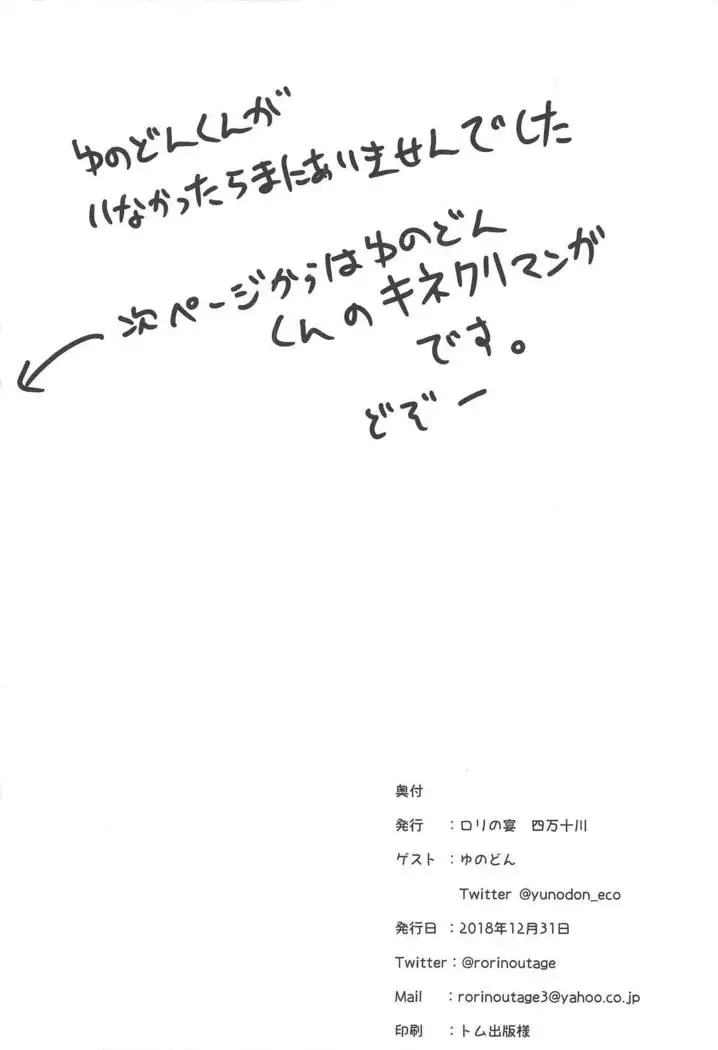 ゆのどんくんが
いなかったらまにあいませんでした
次ページからはゆのどん
くんのキネクリマンガ
です。
どぞー
奥付
発行　：ロリの宴　四万十川
ゲスト　：ゆのどん
Twitter @yunodon_eco
発行日　：2018年12月31日
Twitter：@rorinoutage
Mail　：rorinoutage3@yahoo.co.jp
印刷　：トム出版様